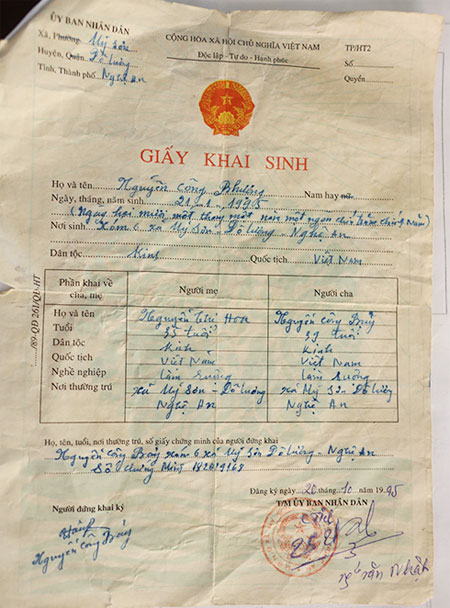 ỦY BAN NHÂN DÂN
Xã, Phường Mỹ Sơn
Huyện, Quận Đô Lương
Tỉnh, Thành phố Nghệ An
CỘNG HÒA XÃ HỘI CHỦ NGHĨA VIỆT NAM
Độc lập - Tự do - Hạnh phúc
TP/HT2
Số
Quyển
GIẤY KHAI SINH
Họ và tên Nguyễn Công Phượng Nam hay nữ
Ngày, tháng, năm sinh 21-1-1995
(Ngày hai mươi một tháng một năm một ngàn chín trăm chín năm)
Nơi sinh Xóm 6 xã Mỹ Sơn - Đô Lương - Nghệ An
Dân tộc Kinh Quốc tịch Việt Nam
Phần khai về cha, mẹ
Người mẹ
Người cha
Họ và tên Nguyễn Thị Hoa Nguyễn Công Bảy
Tuổi 35 tuổi 39 tuổi
Dân tộc Kinh Kinh
Quốc tịch Việt Nam Việt Nam
Nghề nghiệp Làm ruộng Làm ruộng
Nơi thường trú xã Mỹ Sơn - Đô Lương xã Mỹ Sơn Đô Lương
Nghệ An Nghệ An
Họ, tên, tuổi, nơi thường trú, số giấy chứng minh của người đứng khai
Nguyễn Công Bảy xóm 6 xã Mỹ Sơn Đô Lương - Nghệ An
Số chứng minh
Đăng ký ngày 20 tháng 10 năm 1995
Người đứng khai ký
T/M ỦY BAN NHÂN DÂN
Nguyễn Công Bảy
/89-QĐ 261/QĐ-HT